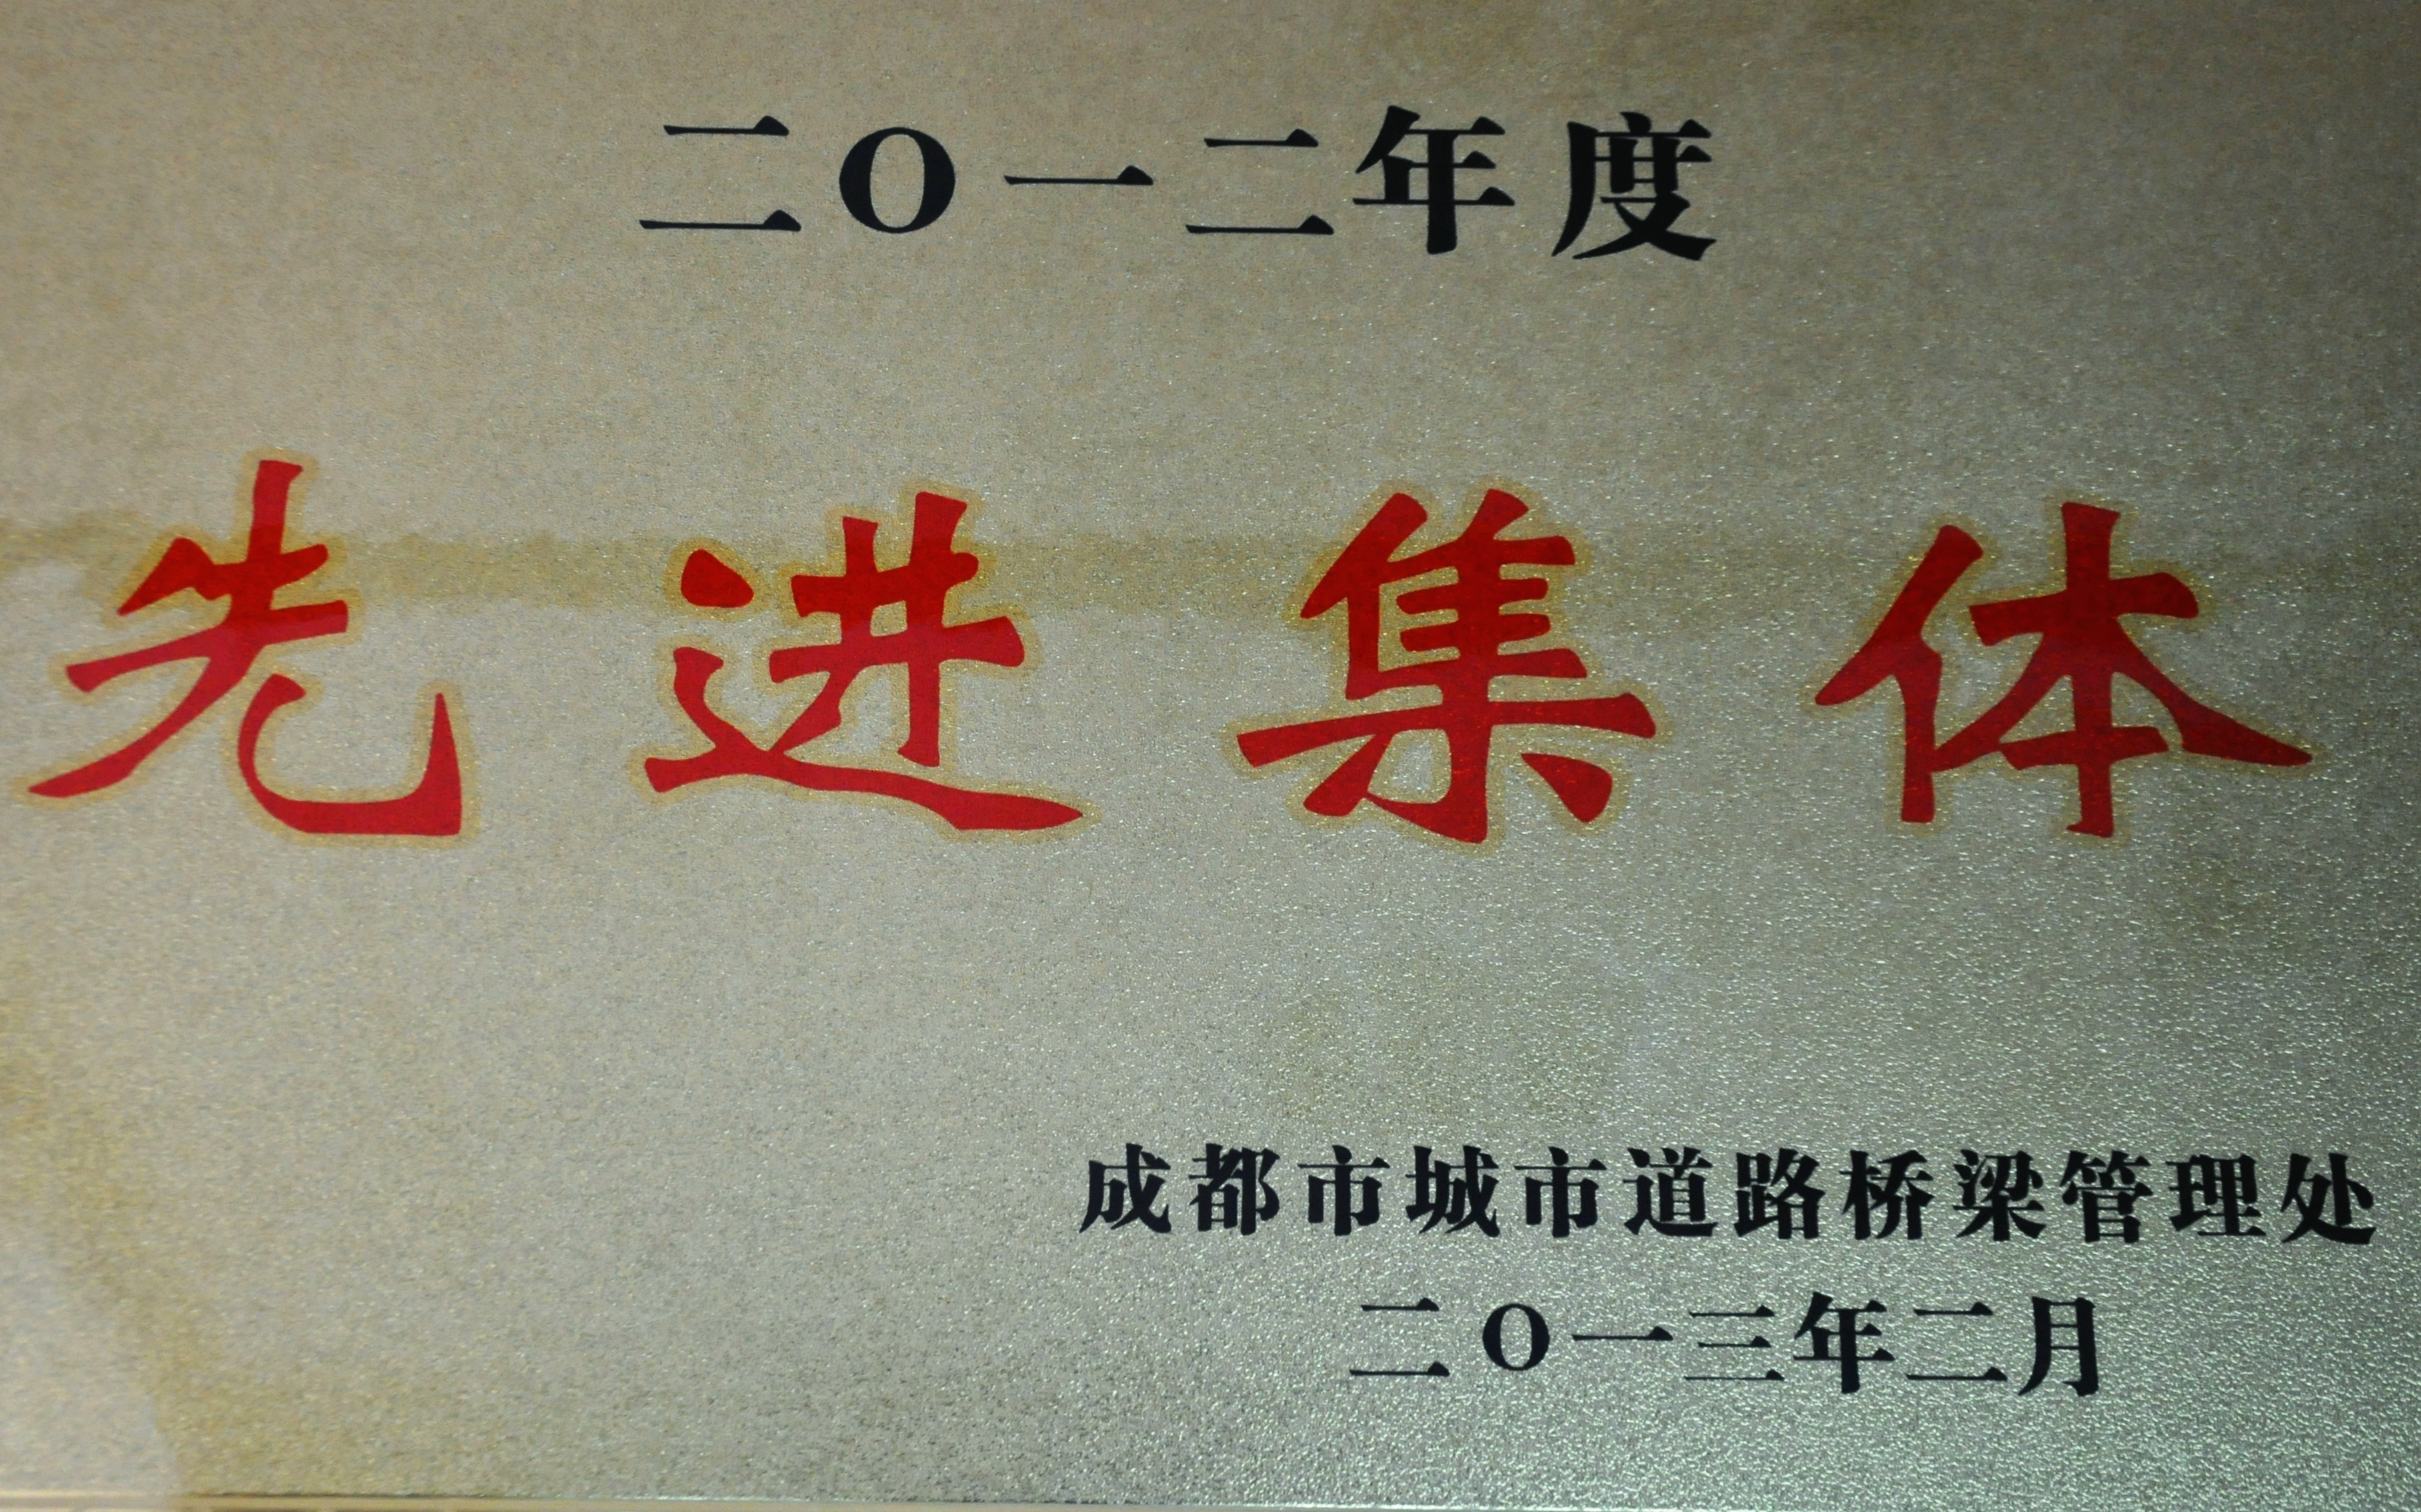 二O一二年度
先进集体
成都市城市道路桥梁管理处
二O一三年二月